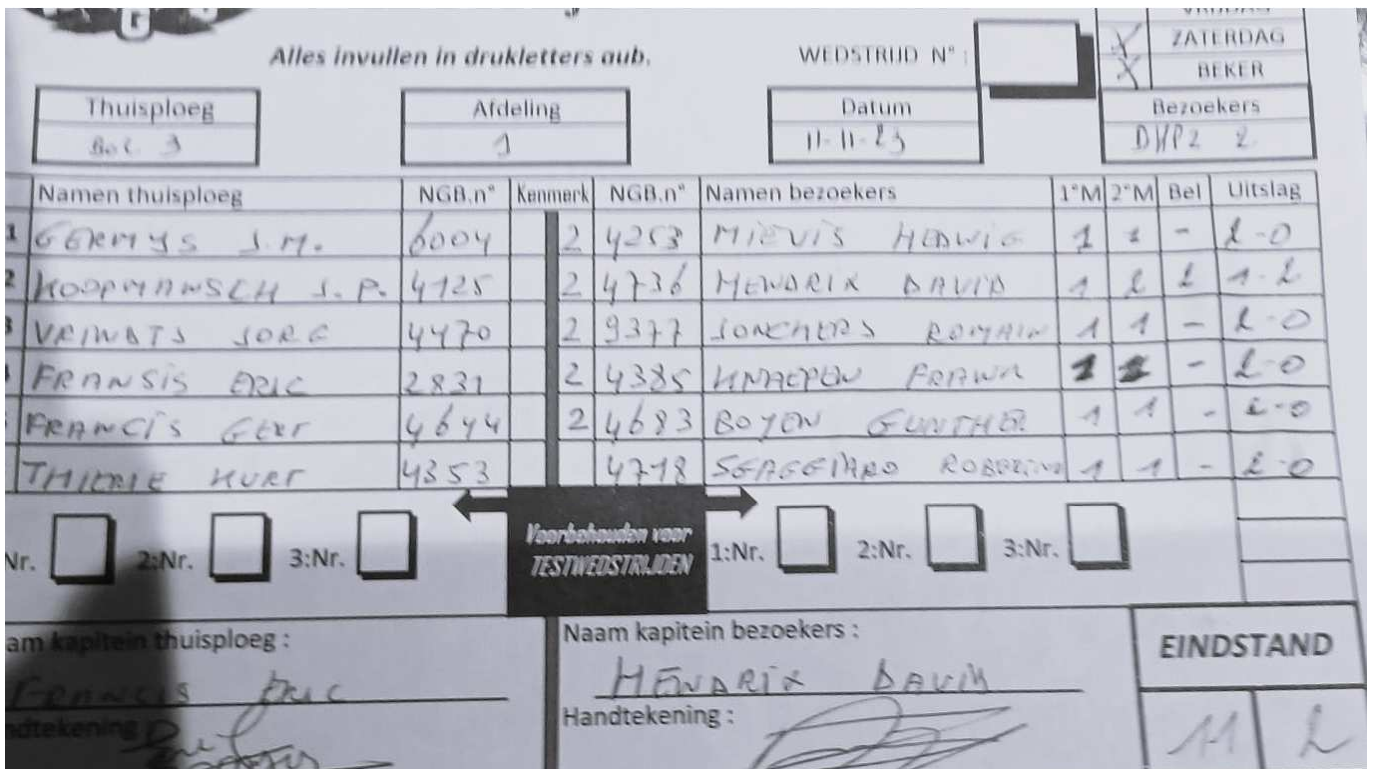 Alles invullen in drukletters aub.
WEDSTRIJD N° :
X ZATERDAG
X BEKER
Thuisploeg Afdeling Datum Bezoekers
3 1 11-11-23 DHPZ 2
Namen thuisploeg NGB.n° Kenmerk NGB.n° Namen bezoekers 1°M 2°M Bel Uitslag
1 GERMYS J.M. 6004 2 4253 MIEVIS HEDWIG 1 1 - 2-0
2 KOOPMANSCH J.P. 4125 2 4736 HENDRIX DAVID 1 2 2 1-2
VRINDTS JORG 4470 2 9377 JONCKERS ROMAIN 1 1 - 2-0
FRANSIS ERIC 2831 2 4385 KNAEPEN FRAWN 1 1 - 2-0
FRANCIS GERT 4644 2 4683 BOYEN GUNTHER 1 1 - 2-0
THIERIE KURT 4353 4718 1 1 - 2-0
Nr. 2:Nr. 3:Nr. Voorbehouden voor TESTWEDSTRIJDEN 1:Nr. 2:Nr. 3:Nr.
am kapitein thuisploeg : Naam kapitein bezoekers : EINDSTAND
FRANCIS ERIC HENDRIX DAVID
ndtekening Handtekening : 11 2